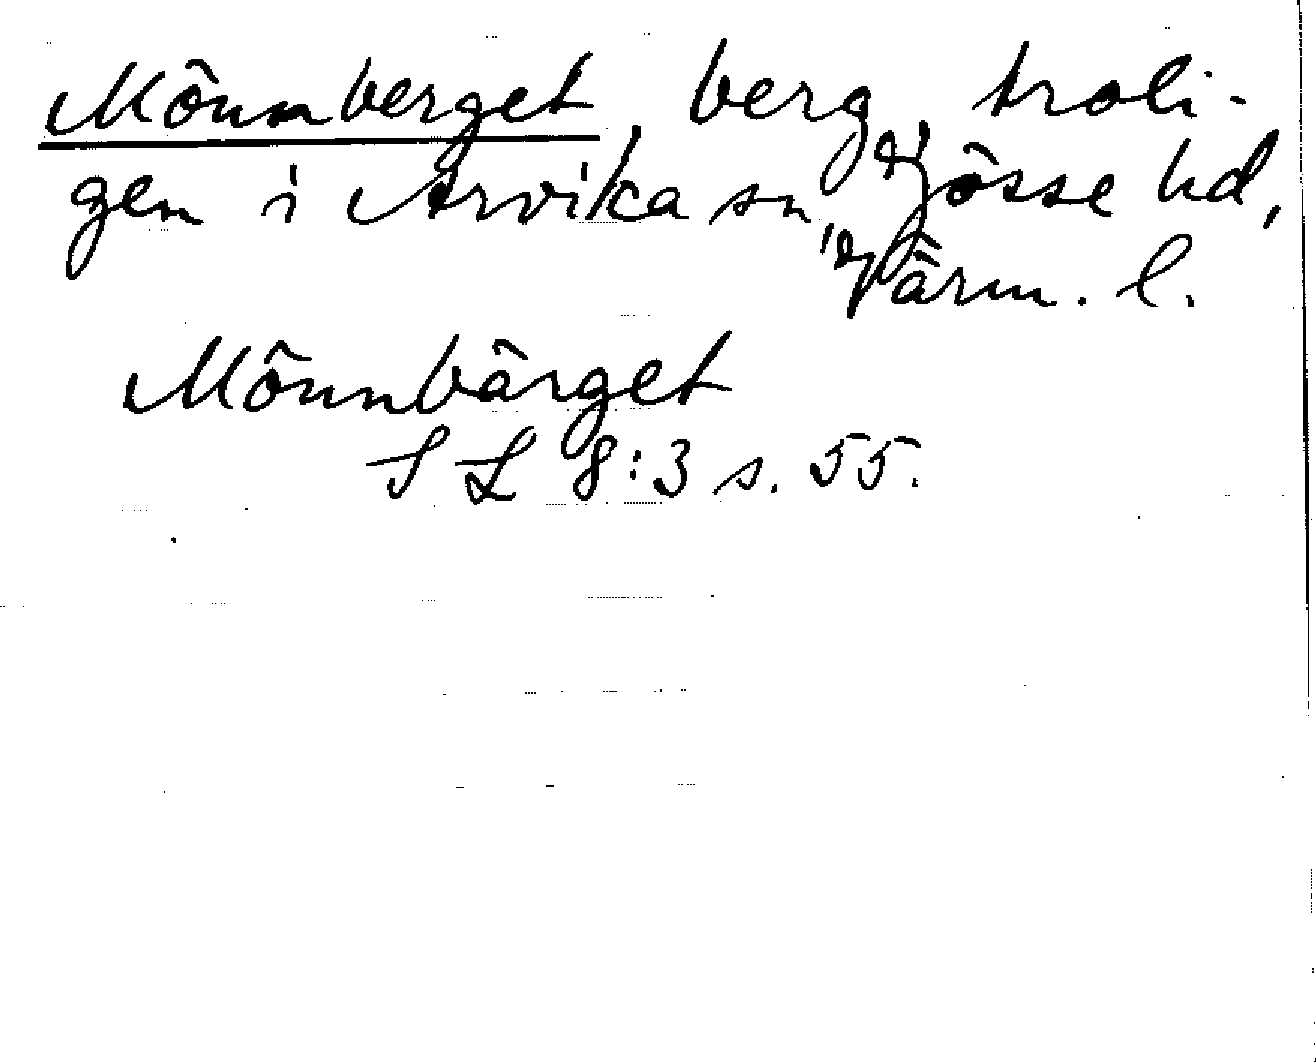 Mönnberget, berg, troli-
gen i Arvika sn, Jösse hd,
Värm. l.
Mönnbärget
SL 8:3 s. 55.